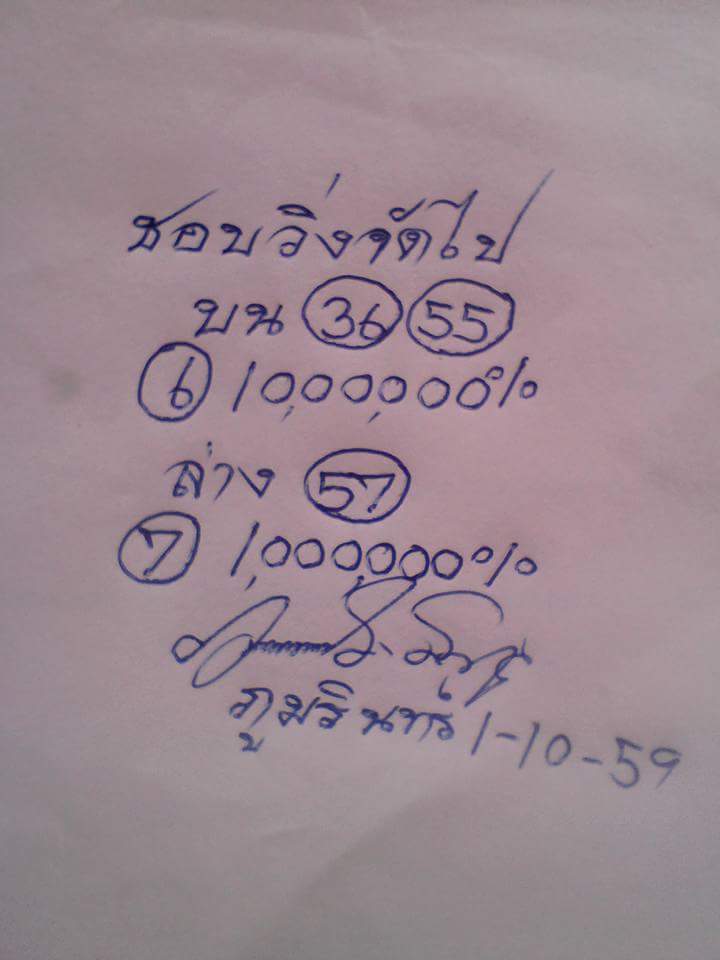 ชอบวิ่งจัดไป
บน 36 55
6 10,00,000%
ล่าง 57
7 1,000,000%
ภูมรินทร์ 1-10-59